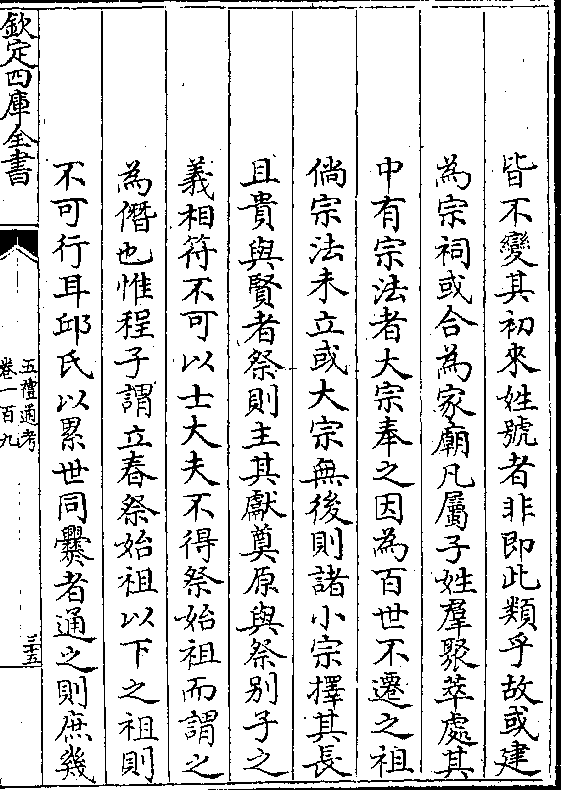 皆不變其初來姓號者非即此類乎故或建
為宗祠或合為家廟凡屬子姓羣聚萃處其
中有宗法者大宗奉之因為百世不遷之祖
倘宗法未立或大宗無後則諸小宗擇其長
且貴與賢者祭則主其獻奠原與祭别子之
義相符不可以士大夫不得祭始祖而謂之
為僭也惟程子謂立春祭始祖以下之祖則
不可行耳邱氏以累世同爨者通之則庶幾
欽定四庫全書
五禮通考
卷一百九
三五